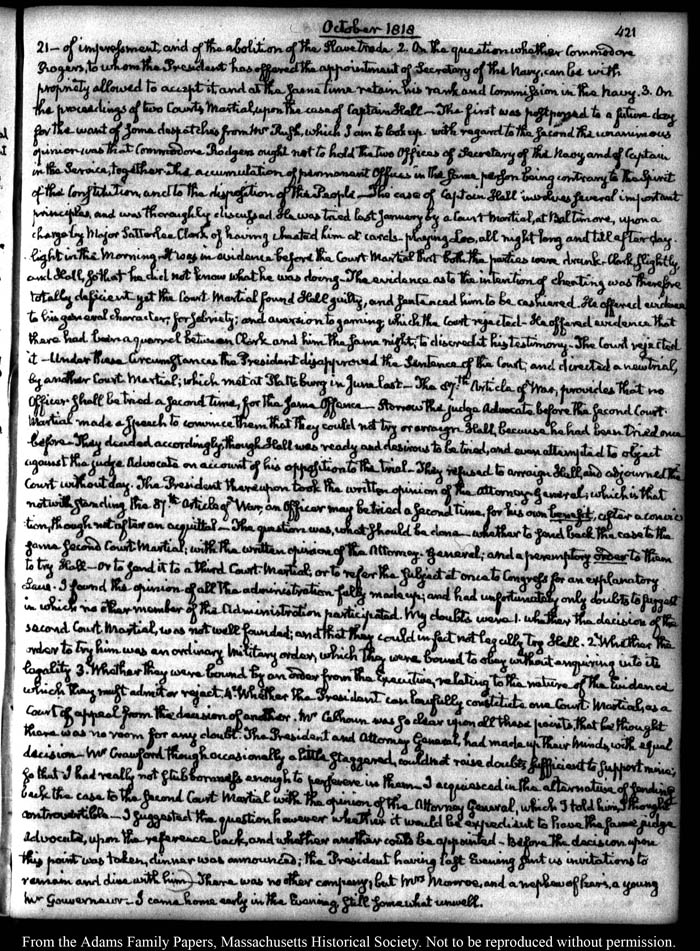 October 1818
421
21— of impressment, and of the abolition of the Slave trade. 2. On the question whether Commodore
Rogers, to whom the President has offered the appointment of Secretary of the Navy, can be with
propriety allowed to accept it, and at the same time retain his rank and commission in the Navy. 3. On
the proceedings of two Courts Martial, upon the case of Captain Hall— The first was postponed to a future day
for the want of some despatches from Mr Rush, which I am to look up. with regard to the second the unanimous
opinion was that Commodore Rodgers ought not to hold the two Offices of Secretary of the Navy, and of Captain
in the Service, together. The accumulation of permanent Offices in the same person being contrary to the Spirit
of the Constitution, and to the disposition of the People— The case of Captain Hall involves several important
principles, and was thoroughly discussed. He was tried last January by a Court Martial, at Baltimore, upon a
charge by Major Satterlee Clark of having cheated him at cards— playing Loo, all night long and till after day-
light in the Morning. It was in evidence before the Court Martial that both the parties were drunk— Clark slightly,
and Hall, so that he did not know what he was doing— The evidence as to the intention of cheating was therefore
totally deficient— yet the Court Martial found Hall guilty, and sentenced him to be cashiered. He offered evidence
to his general character; for sobriety; and aversion to gaming, which the Court rejected— He offered evidence that
there had been a quarrel between Clark and him the same night, to discredit his testimony— The Court rejected
it— Under these Circumstances the President disapproved the Sentence of the Court, and directed a new trial,
by another Court Martial; which met at Plattsburg in June last— The 87.th Article of War, provides that no
Officer shall be tried a second time, for the same Offence— the Judge Advocate before the Second Court
Martial made a speech to convince them that they could not try or arraign Hall, because he had been tried once
before— They decided accordingly, though Hall was ready and desirous to be tried, and even attempted to object
against the Judge Advocate on account of his opposition to the trial— They refused to arraign Hall and adjourned the
Court without day. The President thereupon took the written opinion of the Attorney General, which is that
notwithstanding the 87th Article of War, an Officer may be tried a second time, for his own benefit, after a convic-
tion, though not after an acquittal— The question was, what should be done— whether to send back the case to the
same Second Court Martial; with the written opinion of the Attorney General; and a peremptory order to them
to try Hall— or to send it to a third Court Martial; or to refer the subject at once to Congress for an explanatory
Law. I found the opinion of all the administration fully made up; and had unfortunately only doubts to suggest
in which no other member of the Administration participated. My doubts were 1. whether the decision of the
second Court Martial, was not well founded; and that they could in fact not legally try Hall. 2. Whether the
order to try him was an ordinary Military order, which they were bound to obey without enquiring into its
legality 3. Whether they were bound by an order from the Executive, relating to the nature of the Evidence
which they must admit or reject. 4. Whether the President can lawfully constitute one Court Martial, as a
Court of appeal from the decision of another. Mr Calhoun was so clear upon all these points, that he thought
there was no room for any doubt. The President and Attorney General, had made up their minds, with equal
decision— Mr Crawford though occasionally a little staggered, could not raise doubts sufficient to support mine;
so that I had really not stubbornness enough to persevere in them— I acquiesced in the alternative of sending
back the case to the Second Court Martial with the opinion of the Attorney General, which I told him I thought
controvertible— I suggested the question however whether it would be expedient to have the same judge
Advocate, upon the reference back, and whether another could be appointed— Before the decision upon
this point was taken, dinner was announced; the President having last Evening sent us invitations to
remain and dine with him— There was no other company, but Mrs Monroe, and a nephew of hers, a young
Mr Gouverneur— I came home early in the Evening, still somewhat unwell.
From the Adams Family Papers, Massachusetts Historical Society. Not to be reproduced without permission.